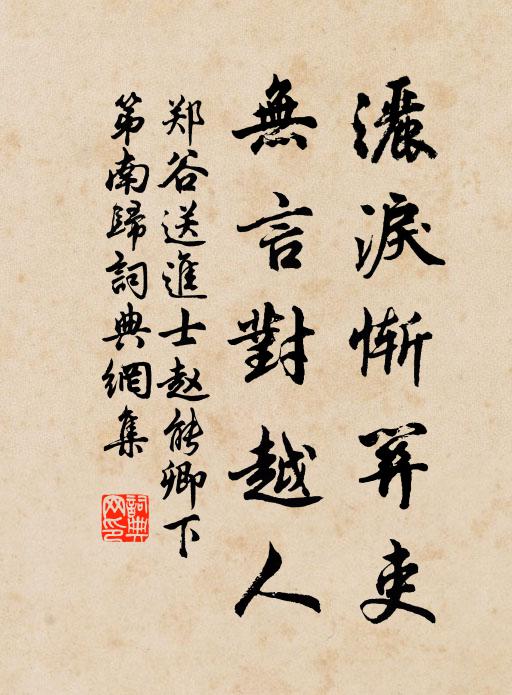 灑淚慚關吏
無言對越人
郑谷送進士赵能卿下
第南歸詞典網集
詞典
网印